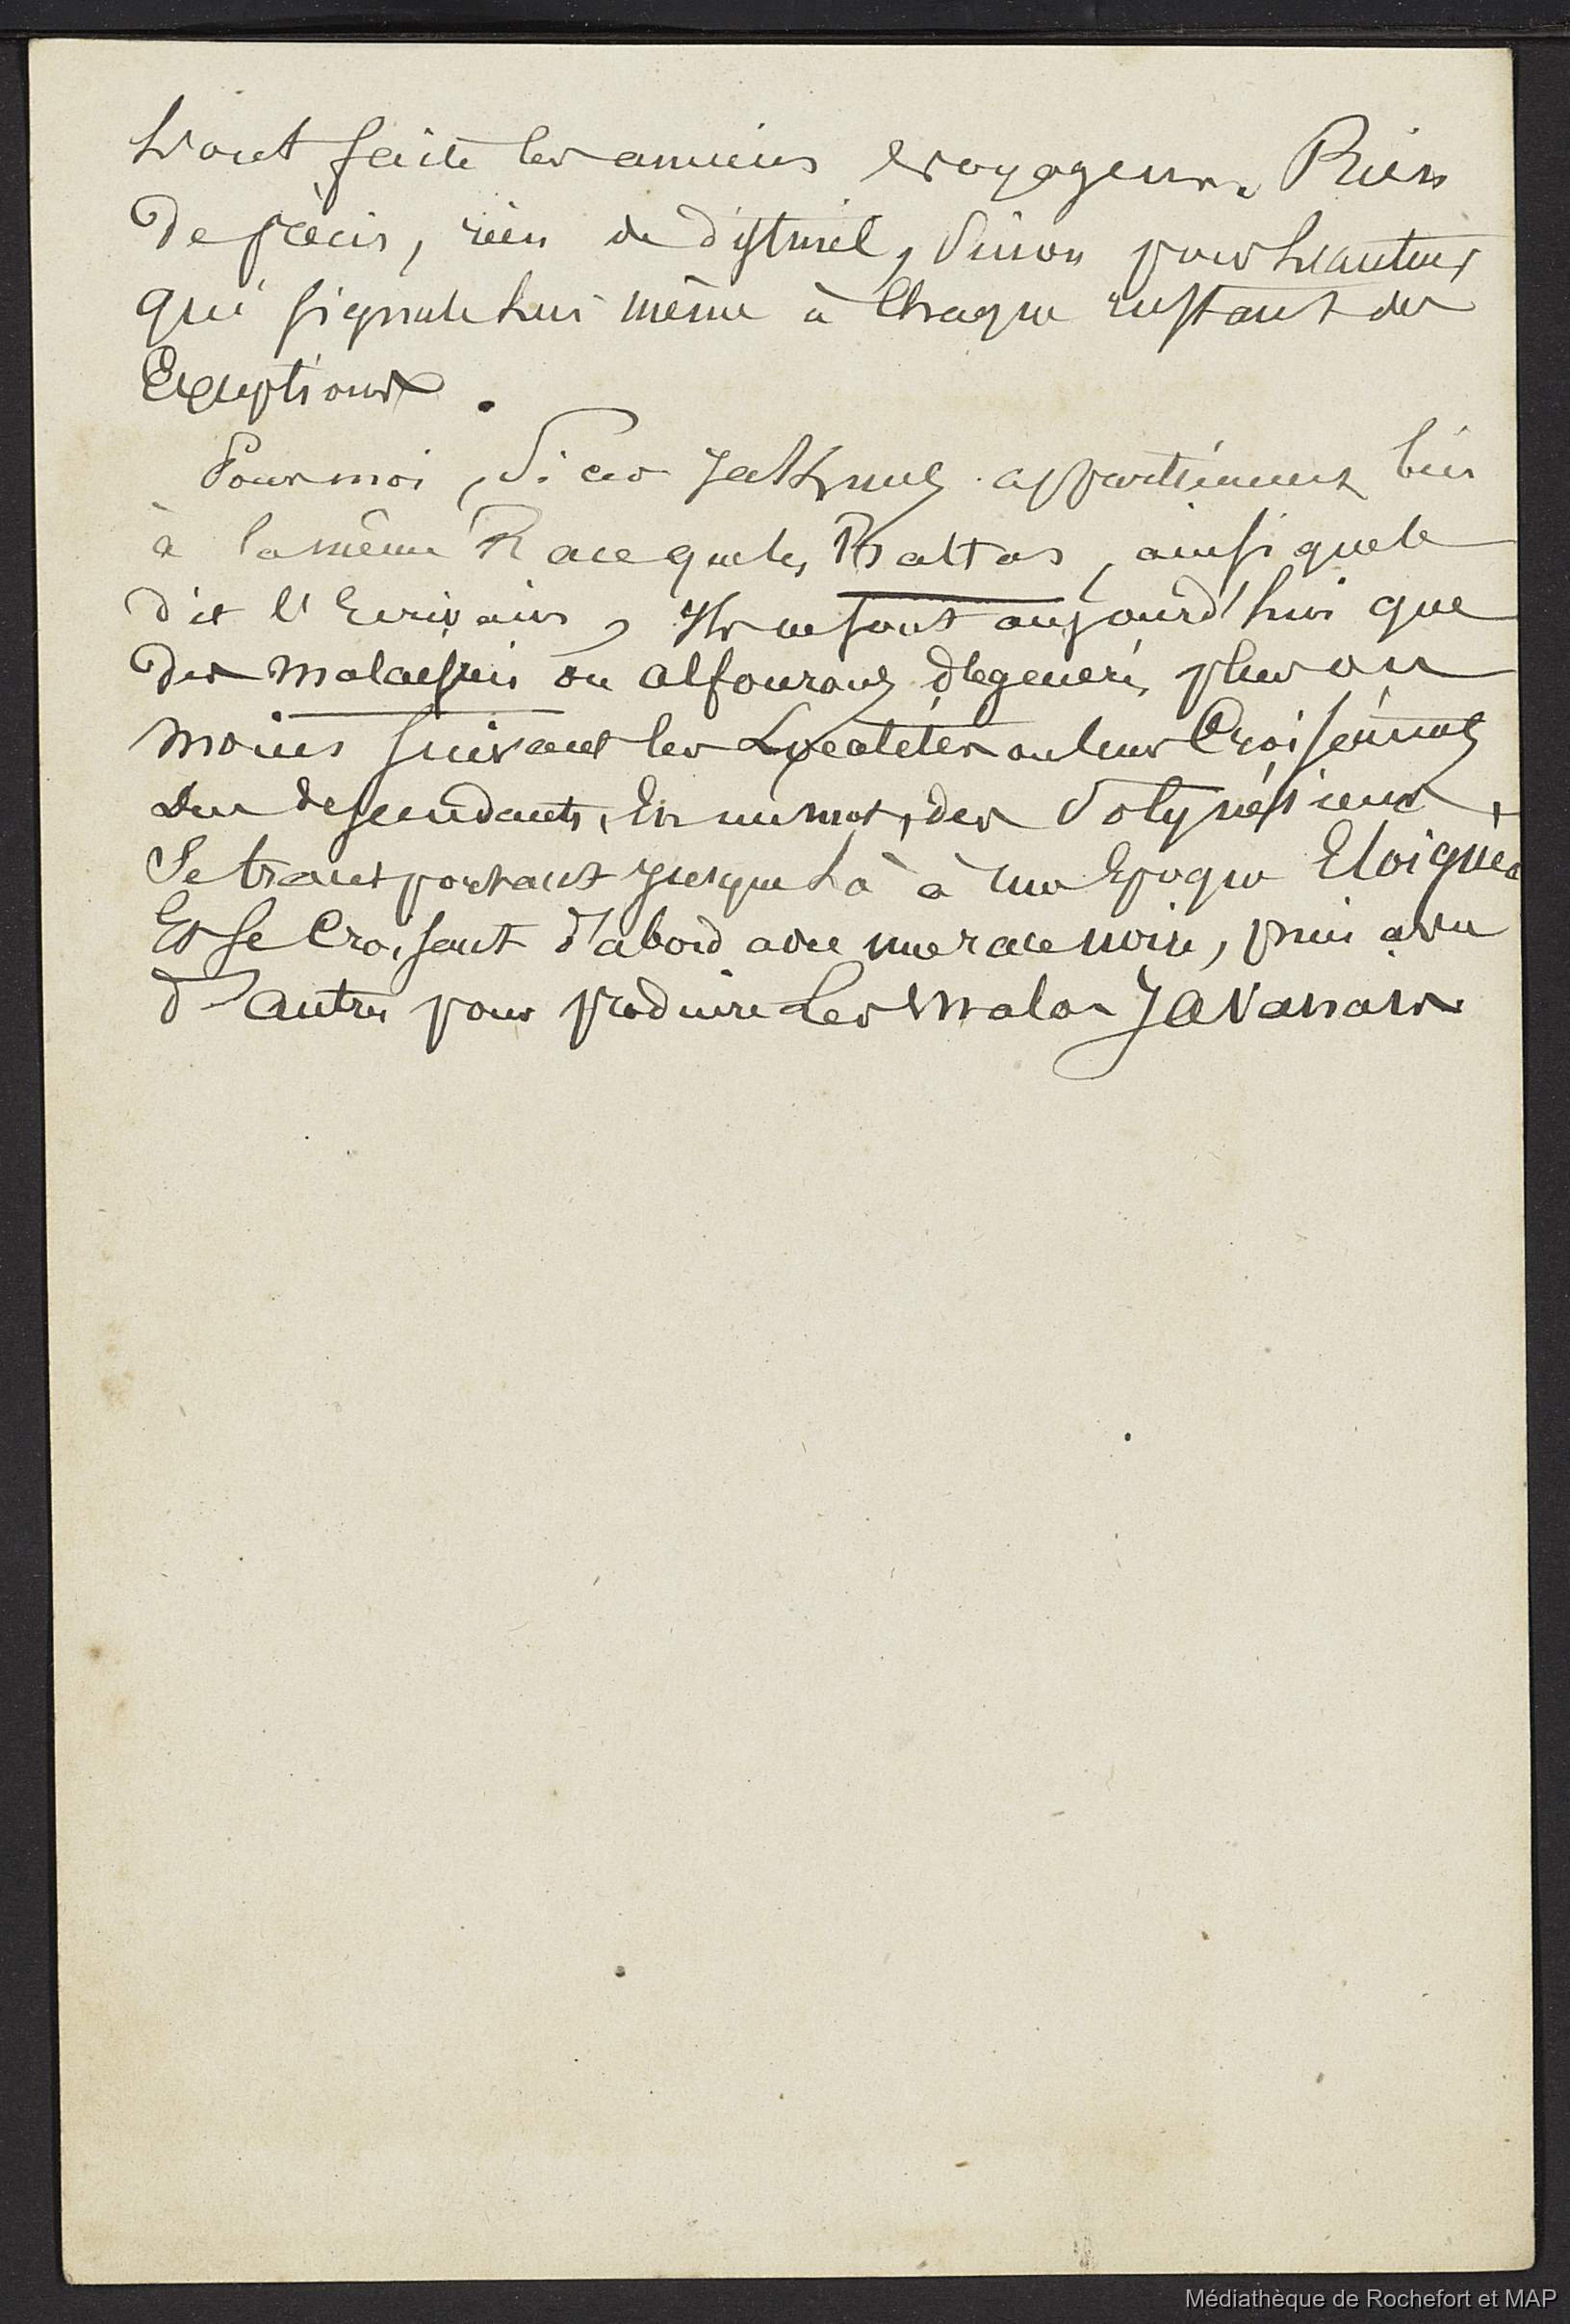 l'ont faite les anciens voyageurs. Rien
de précis, rien de distinct, sinon pour l'auteur
qui signale lui même à chaque instant des
Exceptions.
Pour moi, si ces appartiennent bien
à la même Race que les Battas, ainsi que le
dit l'Ecrivain, Ils ne sont aujourd'hui que
des malaisiens ou alfourous dégénérés plus ou
moins suivant les Localités ou leurs Croisements
des descendants, En un mot, des Polynésiens,
Se transportant jusque là à une Epoque Eloignée
Et se Croisant d'abord avec une race noire, puis avec
d'autres pour produire Les Malas Javanais
Médiathèque de Rochefort et MAP